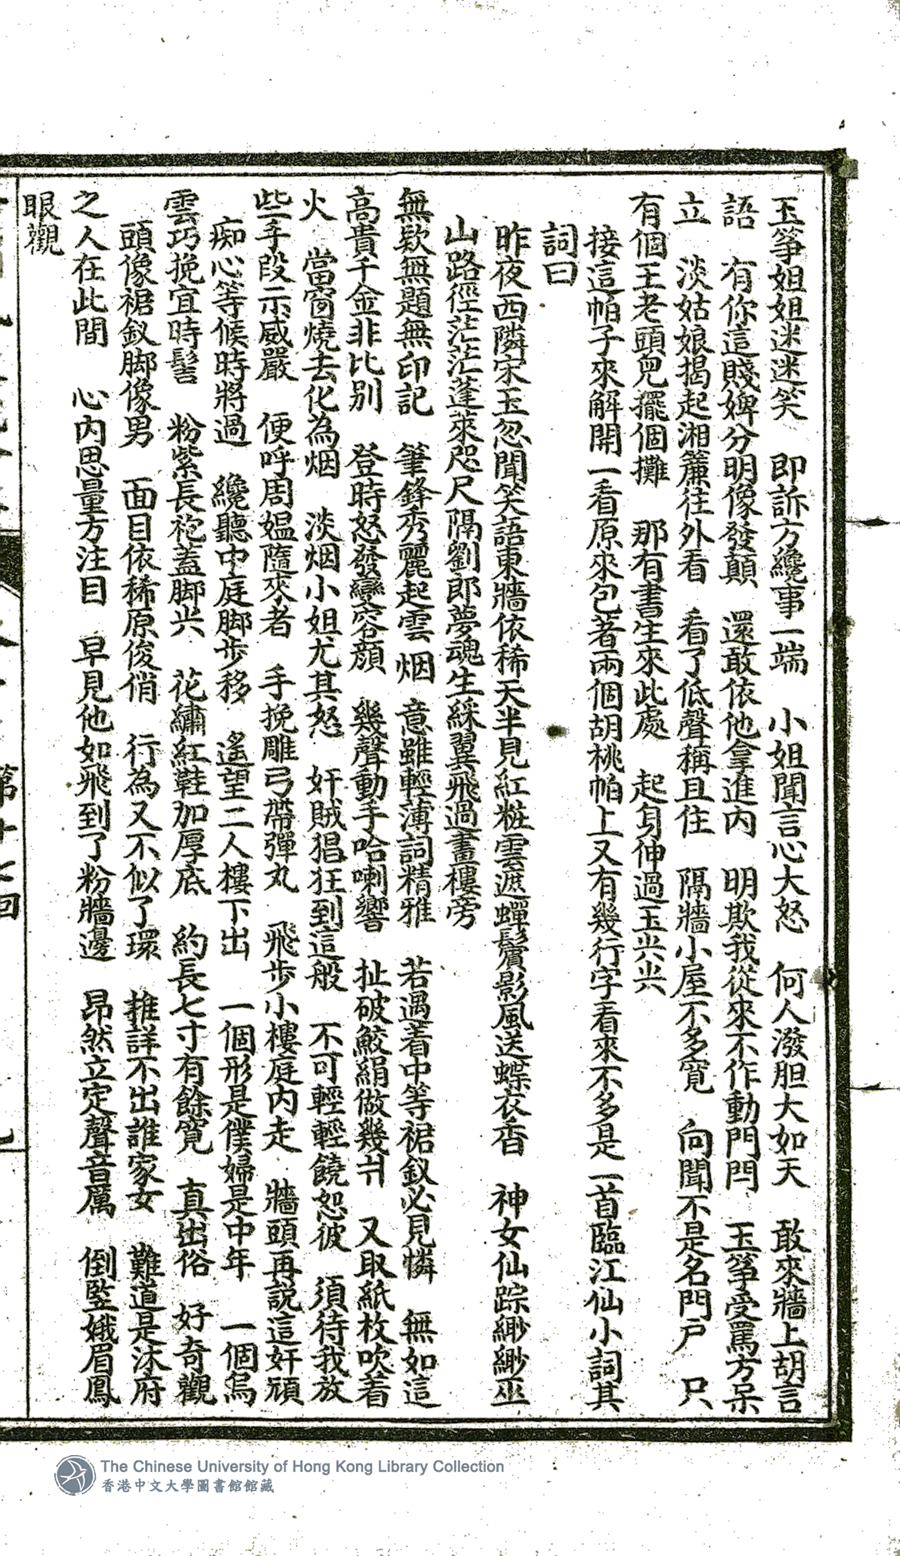 玉筝姐姐迷迷笑　即訴方纔事一端　小姐聞言心大怒　何人潑胆大如天　敢來牆上胡言
語　有你這賤婢分明像發顛　還敢依他拿進内　明欺我從來不作動門閂　玉筝受罵方呆
立　淡姑娘揭起湘簾往外看　看了低聲稱且住　隔牆小屋不多寬　向聞不是名門戶　只
有個王老頭兒擺個攤　那有書生來此處　起身伸過玉尖尖
接這帕子來解開一看原來包著兩個胡桃帕上又有幾行字看來不多是一首臨江仙小詞其
詞曰
昨夜西隣宋玉忽聞笑語東牆依稀天半見紅粧雲遮蟬鬢影風送蝶衣香　神女仙踪緲緲巫
山路徑茫茫蓬萊咫尺隔劉郎夢魂生綵翼飛過畫樓旁
無欵無題無印記　筆鋒秀麗起雲烟　意雖輕薄詞精雅　若遇着中等裙釵必見憐　無如這
高貴千金非比别　登時怒發變容顔　幾聲動手哈喇響　扯破鮫絹做幾爿　又取紙枚吹着
火　當窗燒去化為烟　淡烟小姐尤其怒　奸賊猖狂到這般　不可輕輕饒恕彼　須待我放
些手段示威嚴　便呼周媪隨來者　手挽雕弓帶彈丸　飛步小樓庭内走　牆頭再説這奸頑
痴心等候時將過　纔聽中庭脚步移　遙望二人樓下出　一個形是僕婦是中年　一個烏
雲巧挽宜時髻　粉紫長袍蓋脚尖　花繡紅鞋加厚底　約長七寸有餘寬　真出俗　好奇觀
頭像裙釵脚像男　面目依稀原俊俏　行為又不似了環　推詳不出誰家女　難道是沐府
之人在此間　心内思量方注目　早見他如飛到了粉牆邊　昂然立定聲音厲　倒竪娥眉鳳
眼觀
第十七回
The Chinese University of Hong Kong Library Collection
香港中文大學圖書館館藏